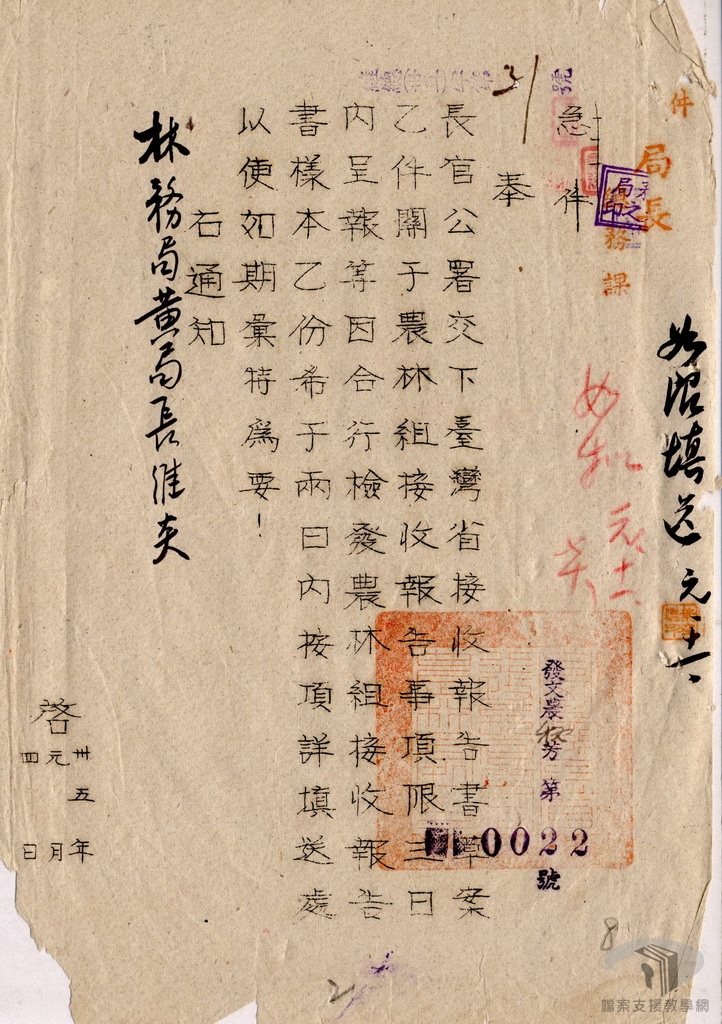 件
局長
務課
如照填送 元、十六
如擬 元、十六
急件
號
31
發文農 秘 芳 第
0022
號
奉
長官公署交下臺灣省接收報告書草案
乙件關于農林組接收報告事項限三日
內呈報等因合行檢發農林組接收報告
書樣本乙份希于兩日內按項詳填送處
以使如期彙特為要！
右通知
林務局黃局長維炎
啓
卅五年
元月
四日
8
2
檔案支援教學網